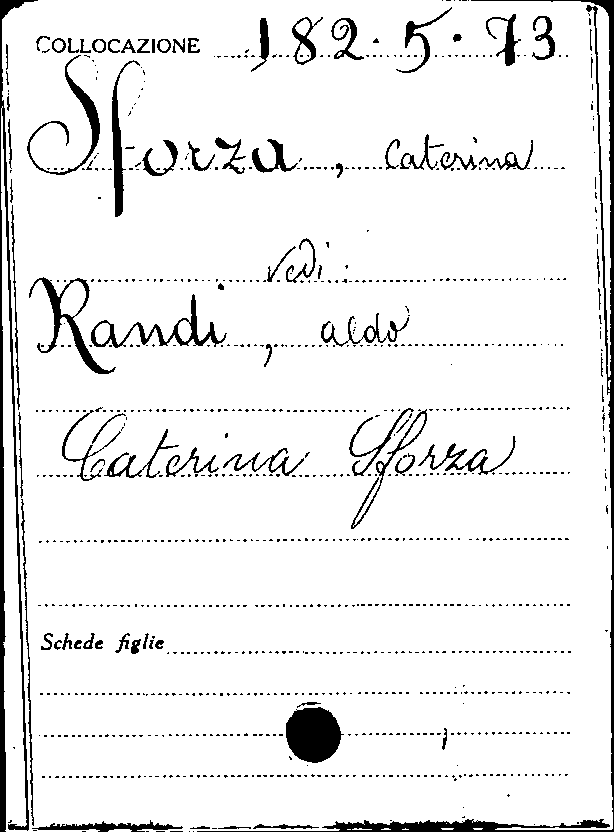 COLLOCAZIONE 182.5.73
Sforza, Caterina
Vedi:
Randi, aldo
Caterina Sforza
Schede figlie